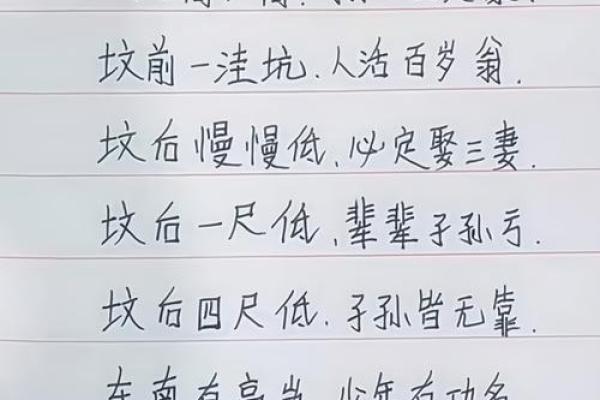 坟前一洼坑.人活百岁翁.
坟后慢慢低.必定娶三妻.
坟后一尺低.辈辈子孙亏.
坟后四尺低.子孙皆无靠.
东南有高岗.少年有功名